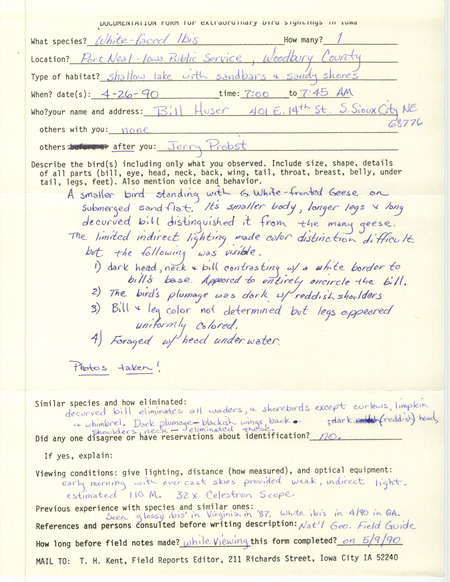 DOCUMENTATION FORM for extraordinary bird sightings in Iowa
What species? White-faced Ibis How many? 1
Location? Port Neal - Iowa Public Service, Woodbury County
Type of habitat? shallow lake with sandbars & sandy shores
When? date(s): 4-26-90 time: 7:00 to 7:45 AM
Who?your name and address: Bill Huser 401 E. 14th St. S. Sioux City NE
68776
others with you: none
others before or after you: Jerry Probst
Describe the bird(s) including only what you observed. Include size, shape, details
of all parts (bill, eye, head, neck, back, wing, tail, throat, breast, belly, under
tail, legs, feet). Also mention voice and behavior.
A smaller bird standing with G. White-fronted Geese on
submerged sand flat. It's smaller body, longer legs & long
decurved bill distinguished it from the many geese.
The limited indirect lighting made color distinction difficult
but the following was visible.
1) dark head, neck & bill contrasting w/ a white border to
bill's base. Appeared to entirely encircle the bill.
2) The bird's plumage was dark w/ reddish shoulders
3) Bill & leg color not determined but legs appeared
uniformly colored.
4) Foraged w/ head underwater.
Photos taken!
Similar species and how eliminated:
decurved bill eliminates all waders, & shorebirds except curlews, limpkin
& whimbrel. Dark plumage - blackish wings, back, dark (reddish) head,
shoulders, neck - eliminated these.
Did any one disagree or have reservations about identification? no.
If yes, explain:
Viewing conditions: give lighting, distance (how measured), and optical equipment:
early morning with overcast skies provided weak, indirect light-
estimated 110 M. 32x Celestron Scope.
Previous experience with species and similar ones:
Seen glossy ibis' in Virginia in '87. White ibis in 4/90 in GA.
References and persons consulted before writing description: Nat'l Geo. Field Guide
How long before field notes made? while viewing this form completed? on 5/9/90
MAIL TO: T. H. Kent, Field Reports Editor, 211 Richards Street, Iowa City IA 52240